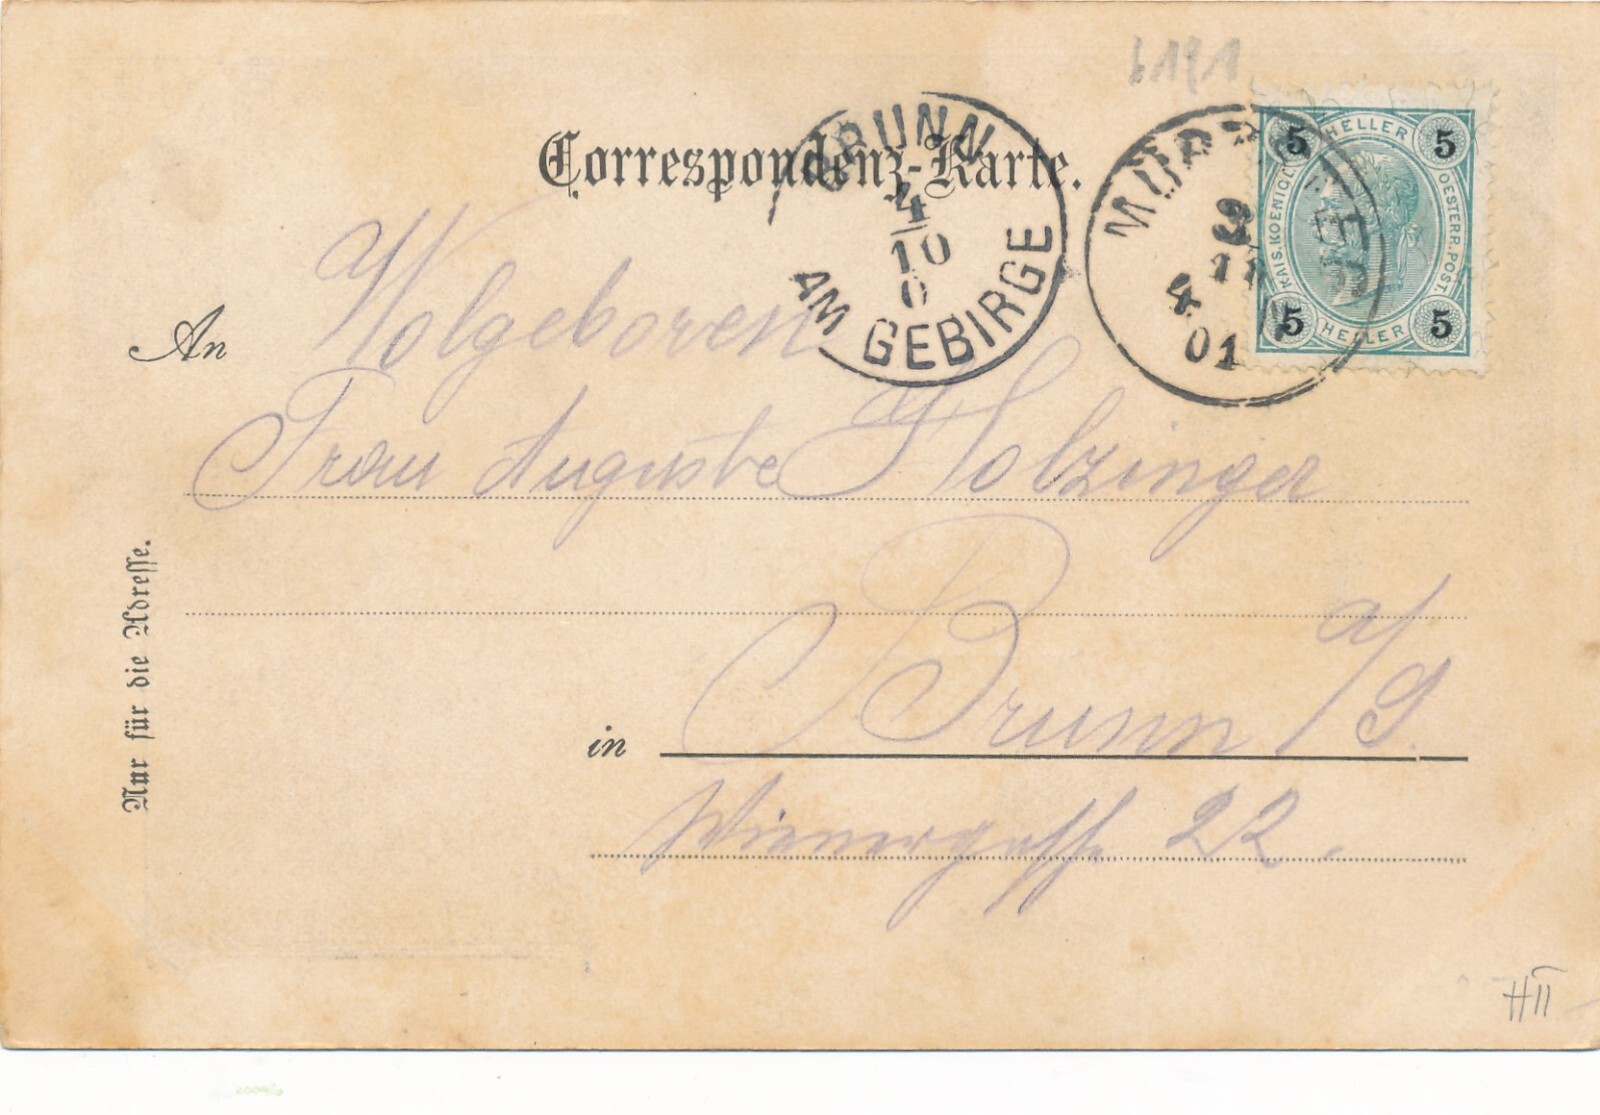 6191
Correspondenz-Karte.
BRUNN
4
10
0
AM GEBIRGE
3
11
4
01
5 HELLER 5
KAIS. KOENIGL.
OESTERR. POST.
5 HELLER 5
An
Wolgeboren
Frau Auguste Holzinger
in
Brunn a/G.
Wienergasse 22.
Nur für die Adresse.
HII